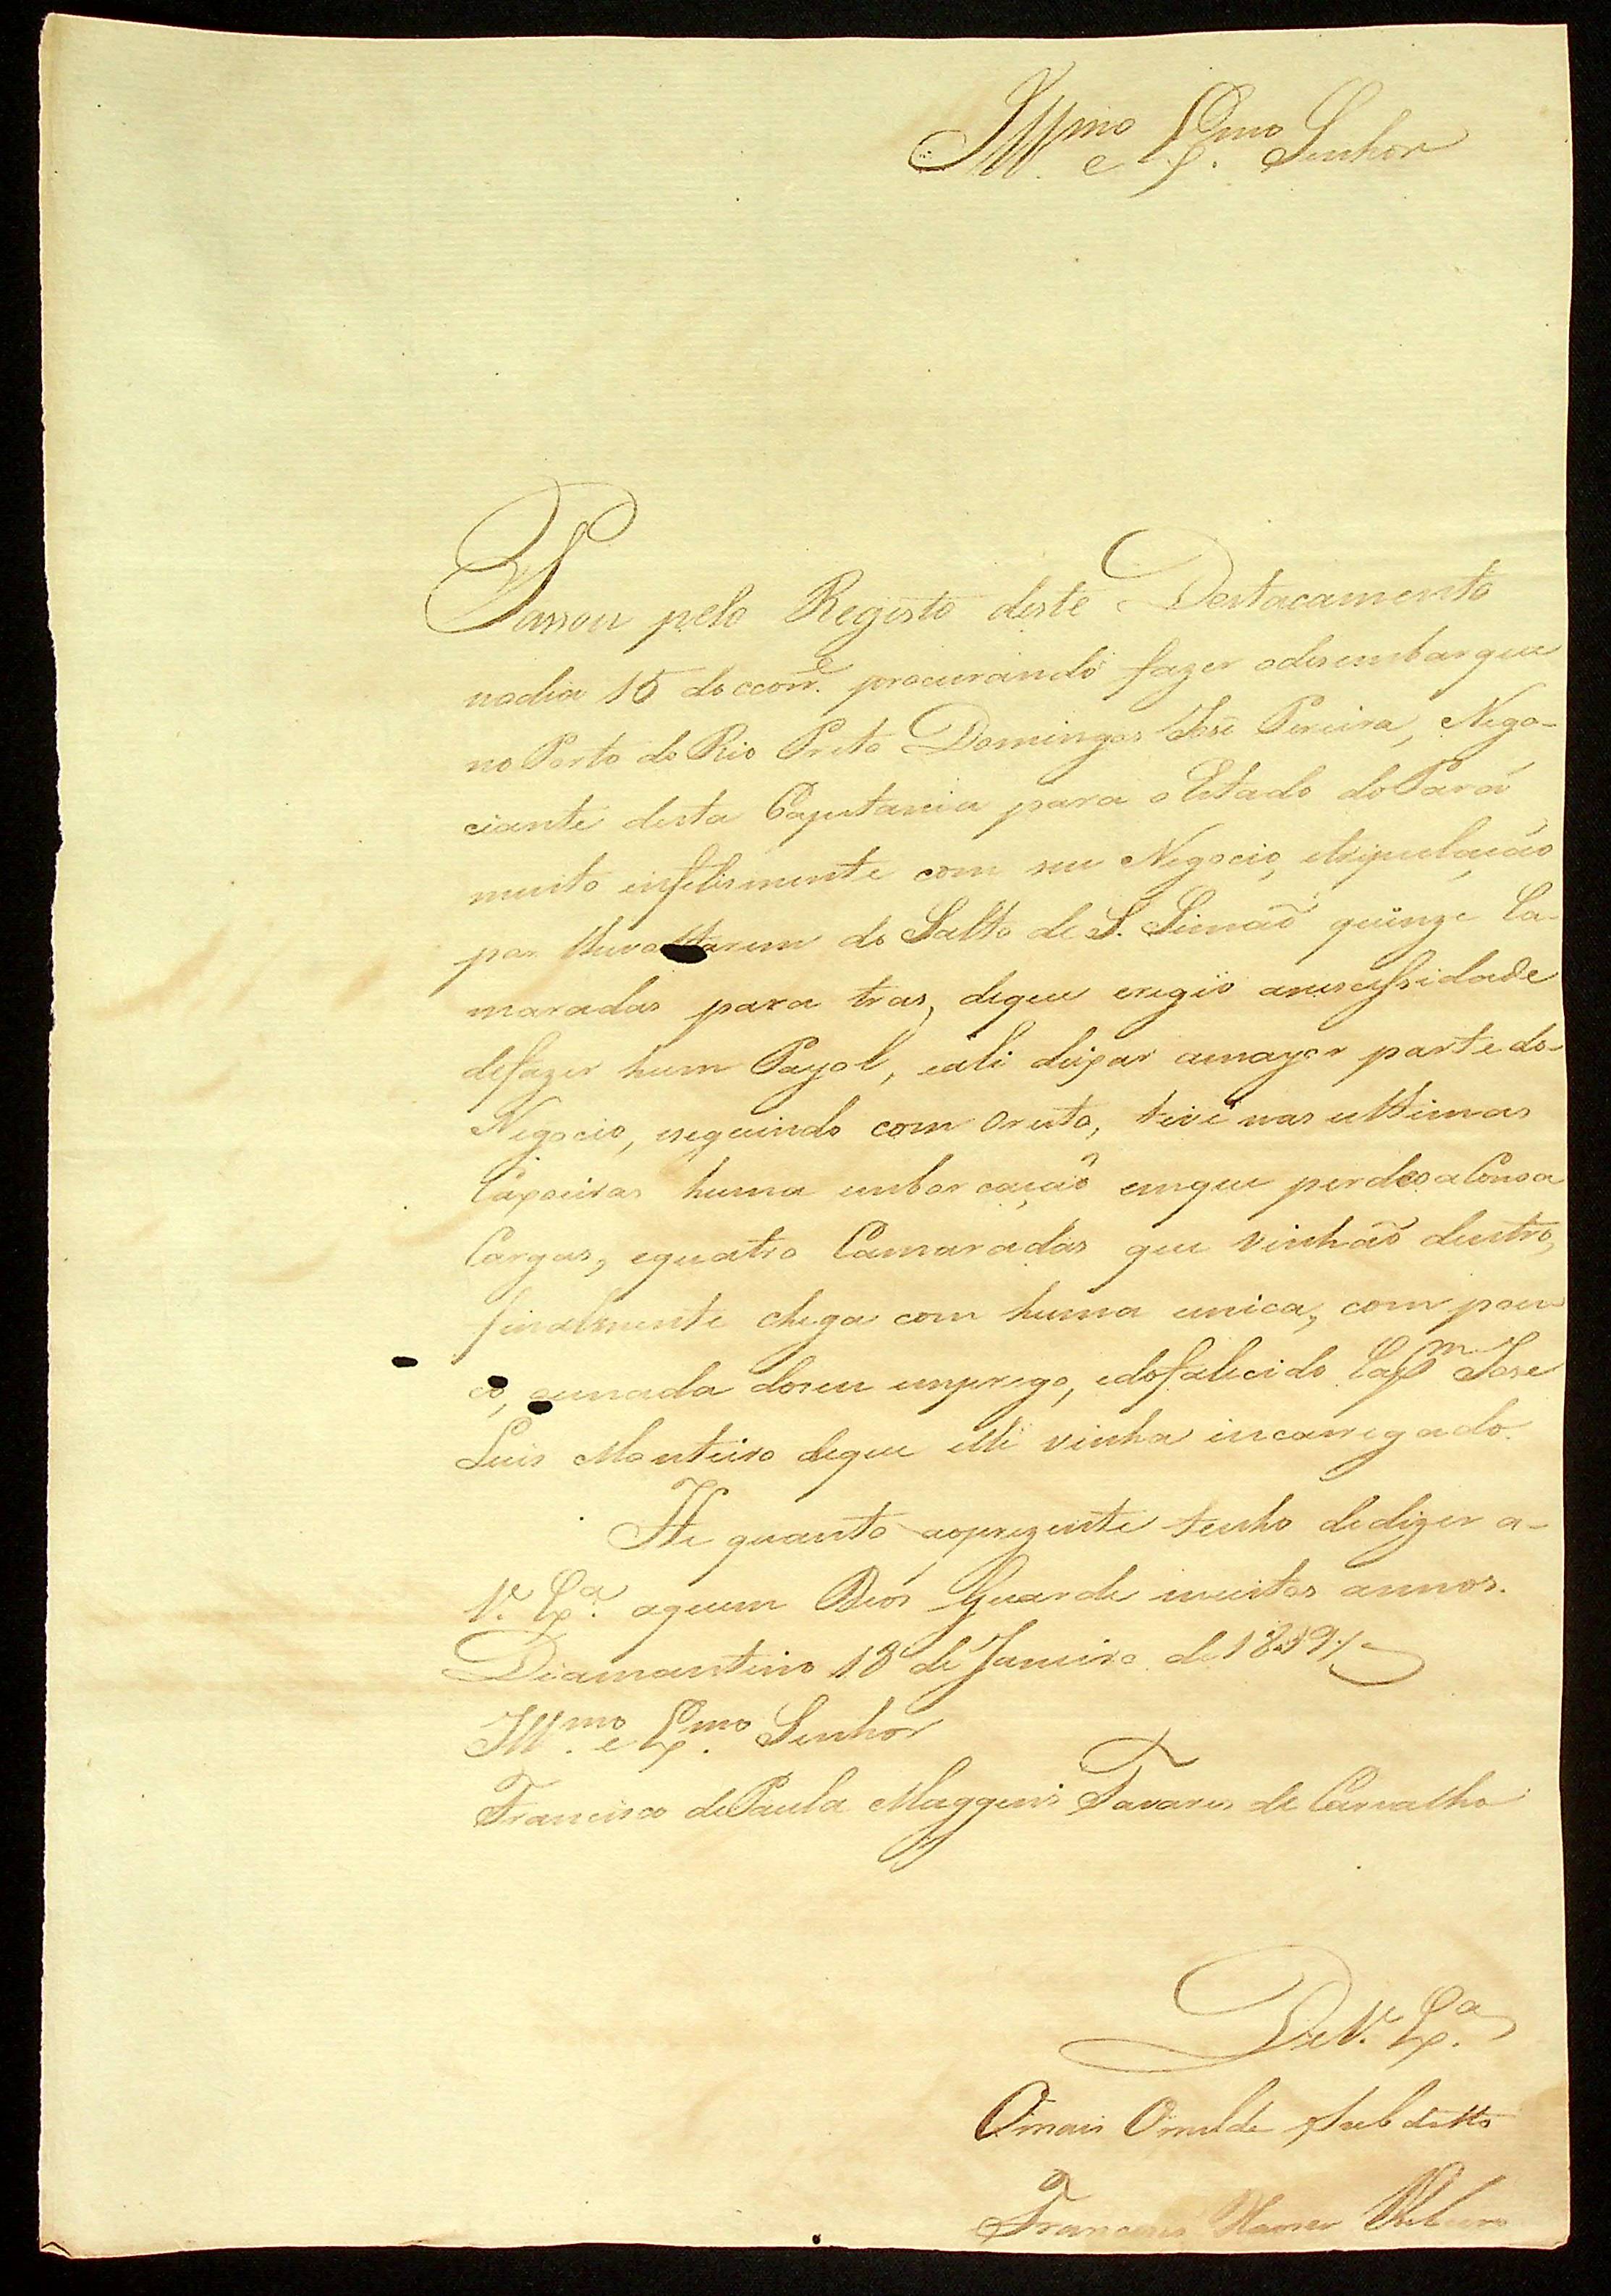 Illmo. e Exmo. Senhor
Passou pelo Registo deste Destacamento
nodia 15 do corre. procurando fazer odesembarque
no Porto do Rio Preto Domingos José Pereira, Nego-
ciante desta Capitania para o Estado do Pará
muito infelismente com seu Negocio, etripulação
por do Salto de S. Simaõ quinze Ca-
maradas para tras, deque exegio anescessidade
defazer hum Payol, eali deixar amayor parte do
Negocio, eseguindo com oresto, teve nas ultimas
Caxoeiras huma embarcaçaõ emque perdeo a Canoa
Cargas, equatro Camaradas que vinhaõ dentro,
finalmente chega com huma unica, com pou-
co, ounada doseu emprego, edofalecido Capm. Jose
Luis Monteiro deque elle vinha incarregado.
He quanto aoprezente tenho dedizer a-
V. Exa. aquem Deos Guarde muitos annos.
Diamantino 18 de Janeiro de
Illmo. e Exmo. Senhor
Francisco dePaula Maggessi Tavares de Carvalho
De V. Exa.
Omais Omilde Subditto
Francisco Xavier